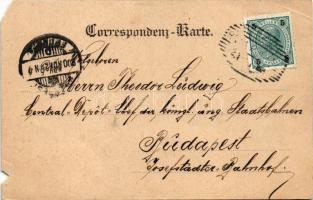 Correspondenz-Karte.
Herrn Theodor Ludwig
Central-Depôt-Chef der königl. ung. Staatsbahnen
Budapest
Josefstädter-Bahnhof.
5